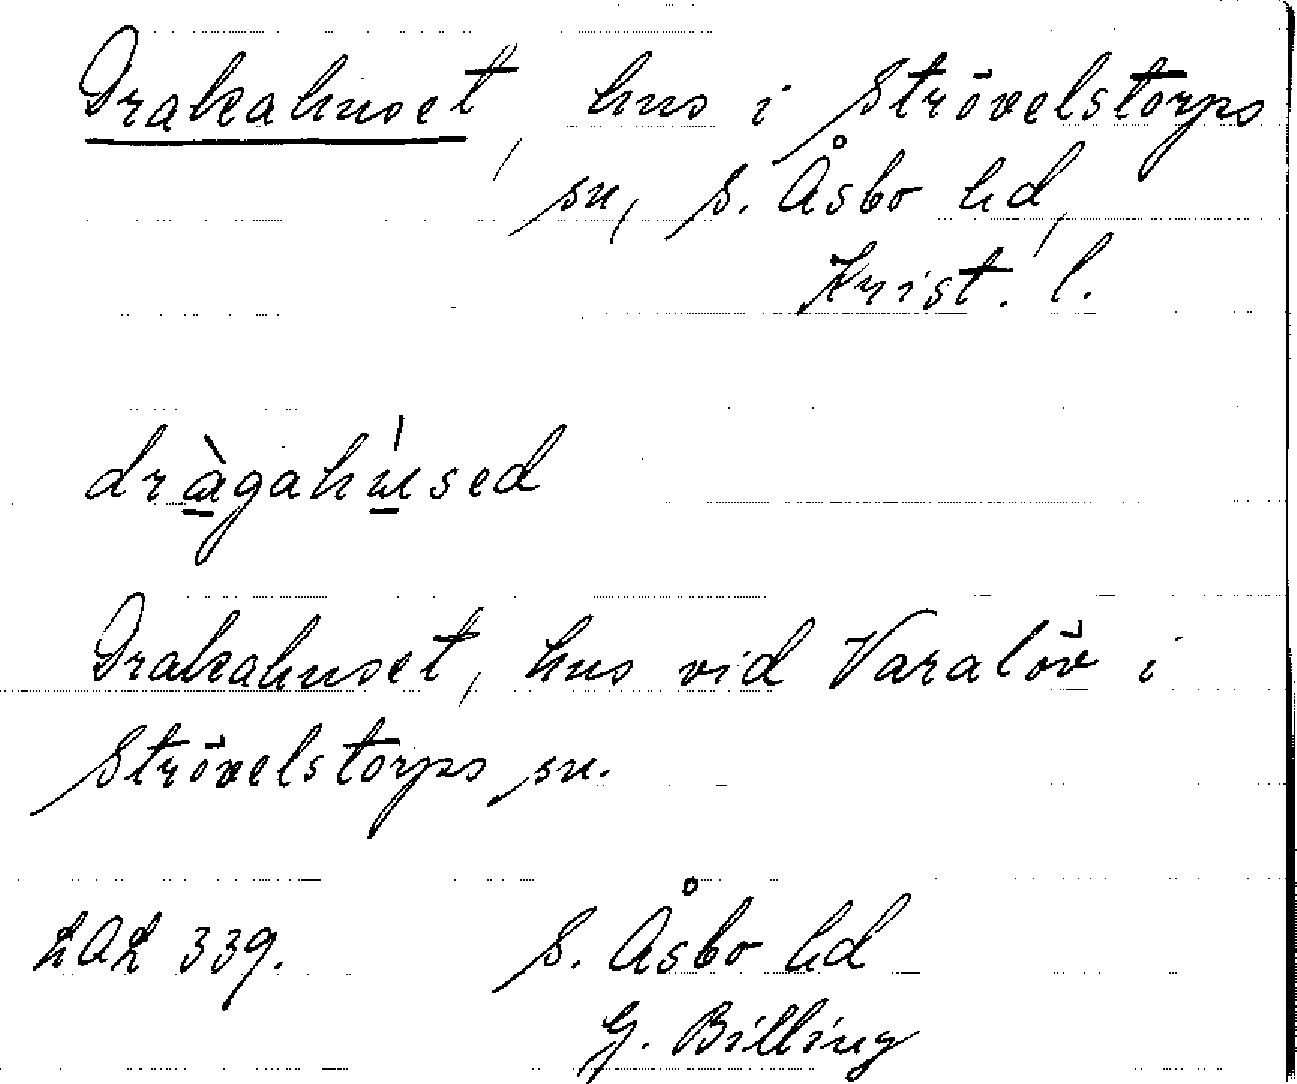 Drakahuset, hus i Strövelstorps
sn, S. Åsbo hd,
Krist. l.
dràgahúsed
Drakahuset, hus vid Varalöv i
Strövelstorps sn.
LAL 339.
S. Åsbo hd
G. Billing